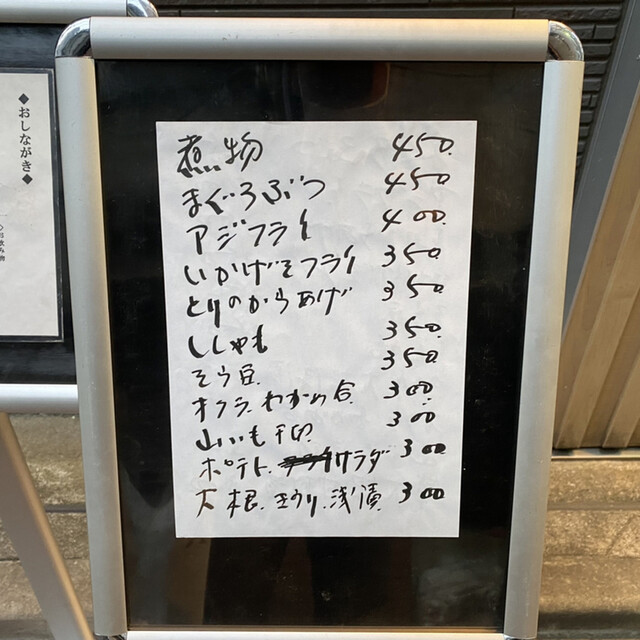 ◆おしながき◆
煮物 450.
まぐろぶつ 450
アジフライ 400.
いかげそフライ 350.
とりのからあげ 350
ししゃも 350.
そら豆 350.
オクラ.わかめ合 300
山いも千切 300
ポテト.サラダ 300
大根.きうり.浅漬 300